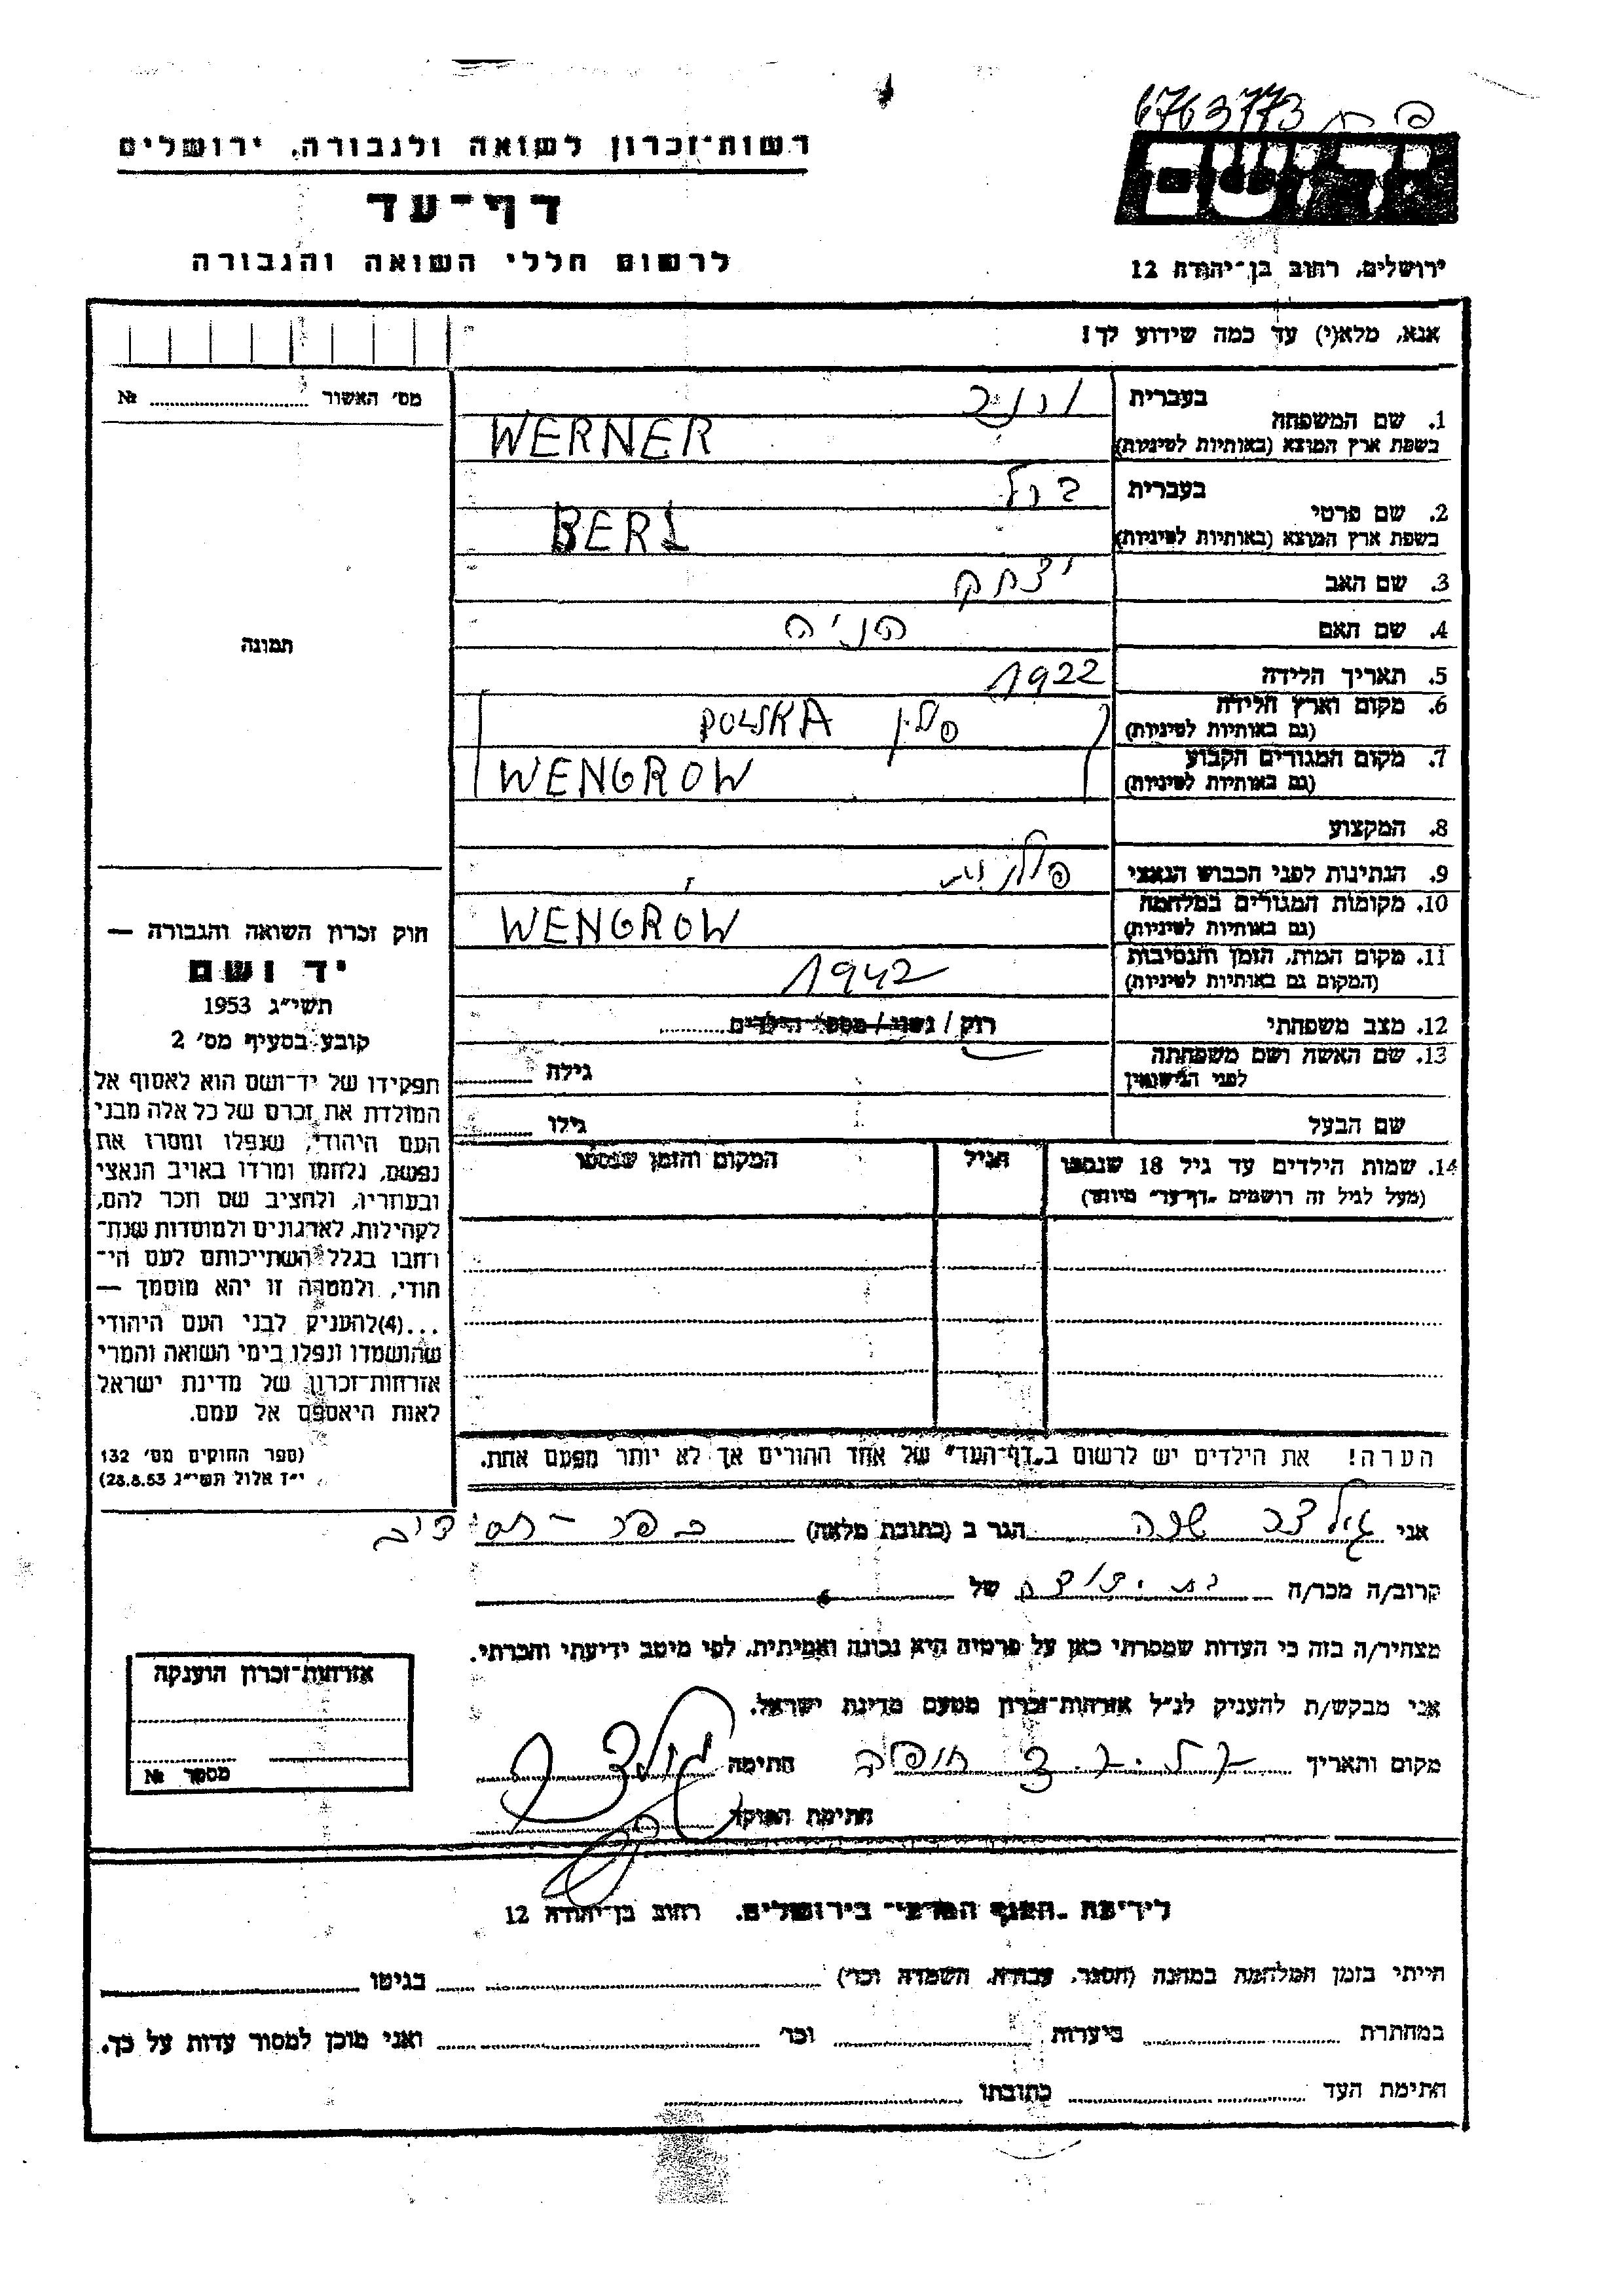 6763773
רשות־זכרון לשואה ולגבורה, ירושלים
יד ושם
דף־עד
לרשום חללי השואה והגבורה
ירושלים, רחוב בן־יהודה 12
אנא, מלא(י) עד כמה שידוע לך!
מס׳ האשור № 
1. שם המשפחה
בעברית
ורנר
בשפת ארץ המוצא (באותיות לטיניות)
WERNER
2. שם פרטי
בעברית
ברל
בשפת ארץ המוצא (באותיות לטיניות)
BERL
3. שם האב יצחק
4. שם האם
5. תאריך הלידה 1922
6. מקום וארץ הלידה
(גם באותיות לטיניות)
פולין POLSKA
7. מקום המגורים הקבוע
(גם באותיות לטיניות)
WENGROW
8. המקצוע
9. הנתינות לפני הכבוש הנאצי פולנית
10. מקומות המגורים במלחמה
(גם באותיות לטיניות)
WENGRÓW
11. מקום המות, הזמן והנסיבות
(המקום גם באותיות לטיניות)
1942
12. מצב משפחתי רווק / נשוי / מספר הילדים
13. שם האשה ושם משפחתה
לפני הנישואין
גילה
שם הבעל גילו
14. שמות הילדים עד גיל 18 שנספו הגיל המקום והזמן שנספו
(מעל לגיל זה רושמים „דף־עד״ מיוחד)
הערה! את הילדים יש לרשום ב„דף־העד״ של אחד ההורים אך לא יותר מפעם אחת.
תמונה
חוק זכרון השואה והגבורה —
יד ושם
תשי״ג 1953
קובע בסעיף מס׳ 2
תפקידו של יד־ושם הוא לאסוף אל
המולדת את זכרם של כל אלה מבני
העם היהודי, שנפלו ומסרו את
נפשם, נלחמו ומרדו באויב הנאצי
ובעוזריו, ולהציב שם וזכר להם,
לקהילות, לארגונים ולמוסדות שנח־
רחבו בגלל השתייכותם לעם הי־
הודי, ולמטרה זו יהא מוסמך —
...(4)להעניק לבני העם היהודי
שהושמדו ונפלו בימי השואה והמרי
אזרחות־זכרון של מדינת ישראל
לאות היאספם אל עמם.
(ספר החוקים מס׳ 132
י״ז אלול תשי״ג 28.8.53)
אני שרה הגר ב (כתובת מלאה) כפר־חסידים
קרוב/ה מכר/ה של
מצהיר/ה בזה כי העדות שמסרתי כאן על פרטיה היא נכונה ואמיתית, לפי מיטב ידיעתי והכרתי.
אני מבקש/ת להעניק לנ״ל אזרחות־זכרון מטעם מדינת ישראל.
מקום ותאריך חיפה חתימה
חתימת הפוקד
אזרחות־זכרון הוענקה
מספר №
לידיעת „הענף המדעי״ בירושלים, רחוב בן־יהודה 12
הייתי בזמן המלחמה במחנה (הסגר, עבודה, השמדה וכו׳) בגיטו
במחתרת ביערות וכו׳ ואני מוכן למסור עדות על כך.
חתימת העד כתובתו